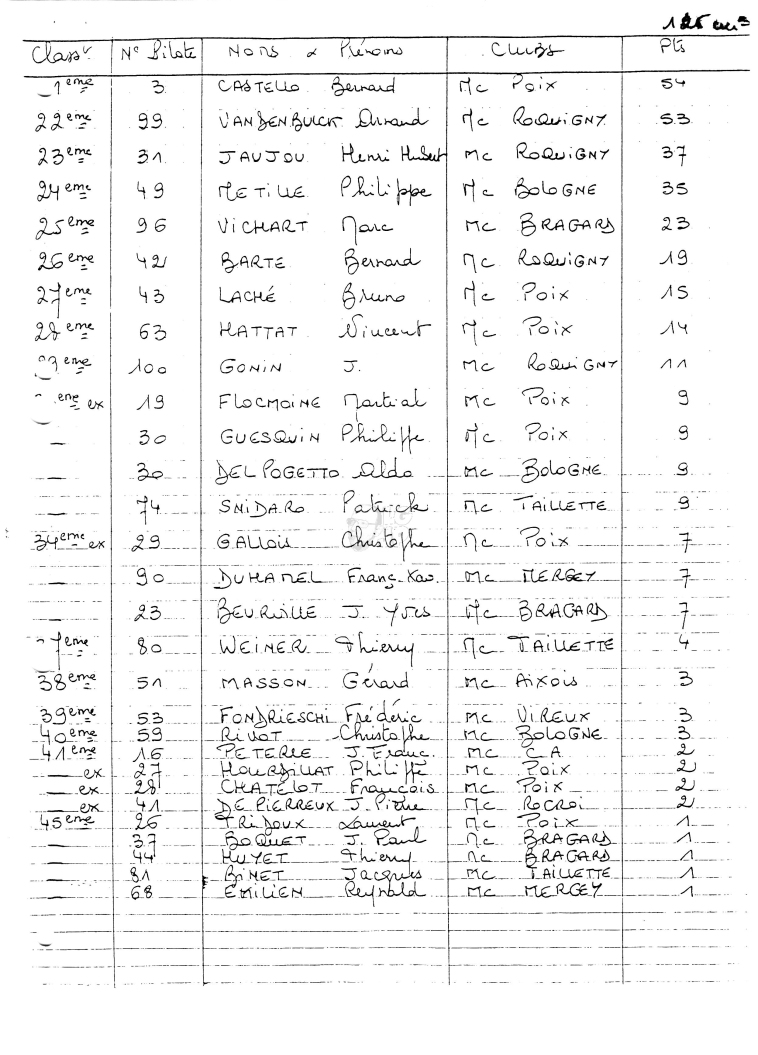 125 cm3
Classt N° Pilote Noms & Prénoms Clubs Pts
1eme 3 CASTELLO Bernard Mc Poix 54
22eme 99 VANDENBULCK Arnand Mc RoQuiGNY 53
23eme 31 JAUJOU Henri Hubert Mc RoQuiGNY 37
24eme 49 METILLE Philippe Mc BoloGNE 35
25eme 96 VICHART Marc Mc BRAGARD 23
26eme 42 BARTE Bernard Mc RoQuiGNY 19
27eme 43 LACHÉ Bruno Mc Poix 15
28eme 63 HATTAT Vincent Mc Poix 14
9eme 100 GONIN J. Mc RoQuiGNY 11
eme ex 19 FLOCMOINE Martial Mc Poix 9
— 30 GUESQUIN Philippe Mc Poix 9
— 30 DEL POGETTO Aldo Mc BoloGNE 9
— 74 SNIDARO Patrick Mc TAILLETTE 9
34eme ex 29 GALLOIS Christophe Mc Poix 7
— 90 DUHAMEL Franç-Xav. Mc MERGEY 7
— 23 BEURVILLE J. Yves Mc BRAGARD 7
7eme 80 WEINER Thierry Mc TAILLETTE 4
38eme 51 MASSON Gérard Mc Aixois 3
39eme 53 FONDRIESCHI Frédéric Mc VIREUX 3
40eme 59 RIVOT Christophe Mc BOLOGNE 3
41eme 16 PETERLE J. Franc. Mc C.A 2
— ex 27 HOURDILLAT Philippe Mc Poix 2
— ex 28 CHATELOT François Mc Poix 2
— ex 41 DE PIERREUX J. Pierre Mc ROCROI 2
45eme 26 TRIDOUX Laurent Mc Poix 1
— 37 BOQUET J. Paul Mc BRAGARD 1
— 44 HUYET Thierry Mc BRAGARD 1
— 81 BINET Jacques Mc TAILLETTE 1
— 68 EMILIEN Reynald Mc MERGEY 1